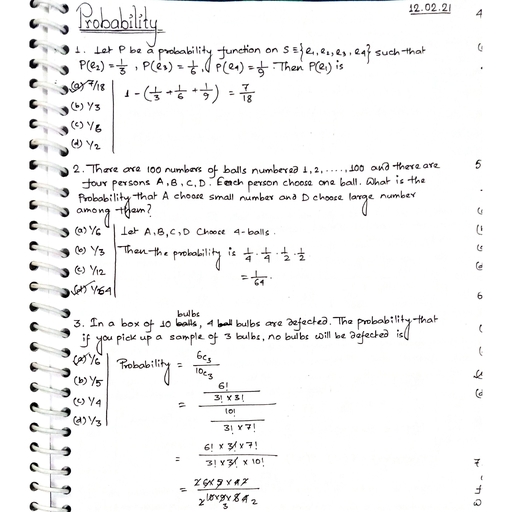 Probability
12.02.21
1. Let P be a probability function on S = {e₁, e₂, e₃, e₄} such that
P(e₂) = 1/3, P(e₃) = 1/6, P(e₄) = 1/9. Then P(e₁) is
(a) 7/18
(b) 1/3
(c) 1/6
(d) 1/2
1 - (1/3 + 1/6 + 1/9) = 7/18
2. There are 100 numbers of balls numbered 1, 2, ....., 100 and there are
four persons A, B, C, D. Each person choose one ball. What is the
Probability that A choose small number and D choose large number
among them?
(a) 1/6
(b) 1/3
(c) 1/12
(d) 1/64
Let A, B, C, D Choose 4-balls.
Then the probability is 1/4 · 1/4 · 1/2 · 1/2
= 1/64.
bulbs
3. In a box of 10 balls, 4 bulbs are defected. The probability that
if you pick up a sample of 3 bulbs, no bulbs will be defected is
(a) 1/6
(b) 1/5
(c) 1/4
(d) 1/3
Probability = 6c₃ / 10c₃
= (6! / (3! × 3!)) / (10! / (3! × 7!))
= (6! × 3! × 7!) / (3! × 3! × 10!)
4
5
6
7